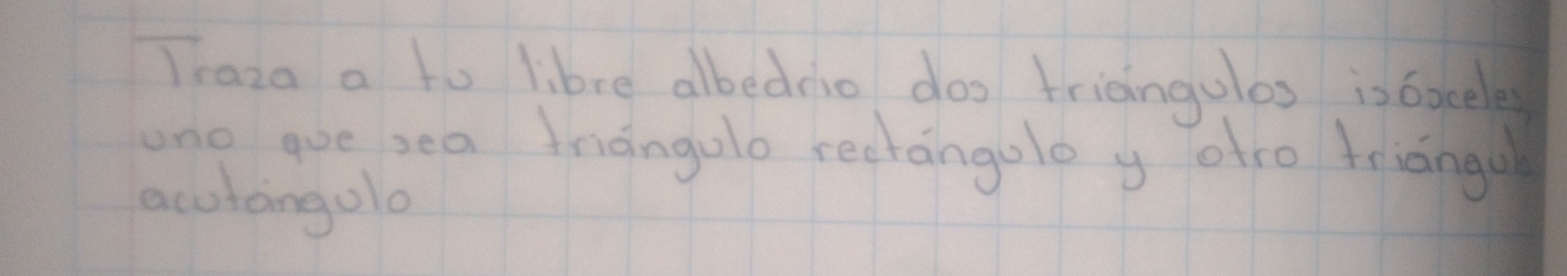 Traza a tu libre albedrio dos triángulos isósceles,
uno que sea triángulo rectángulo y otro triángulo
acutángulo